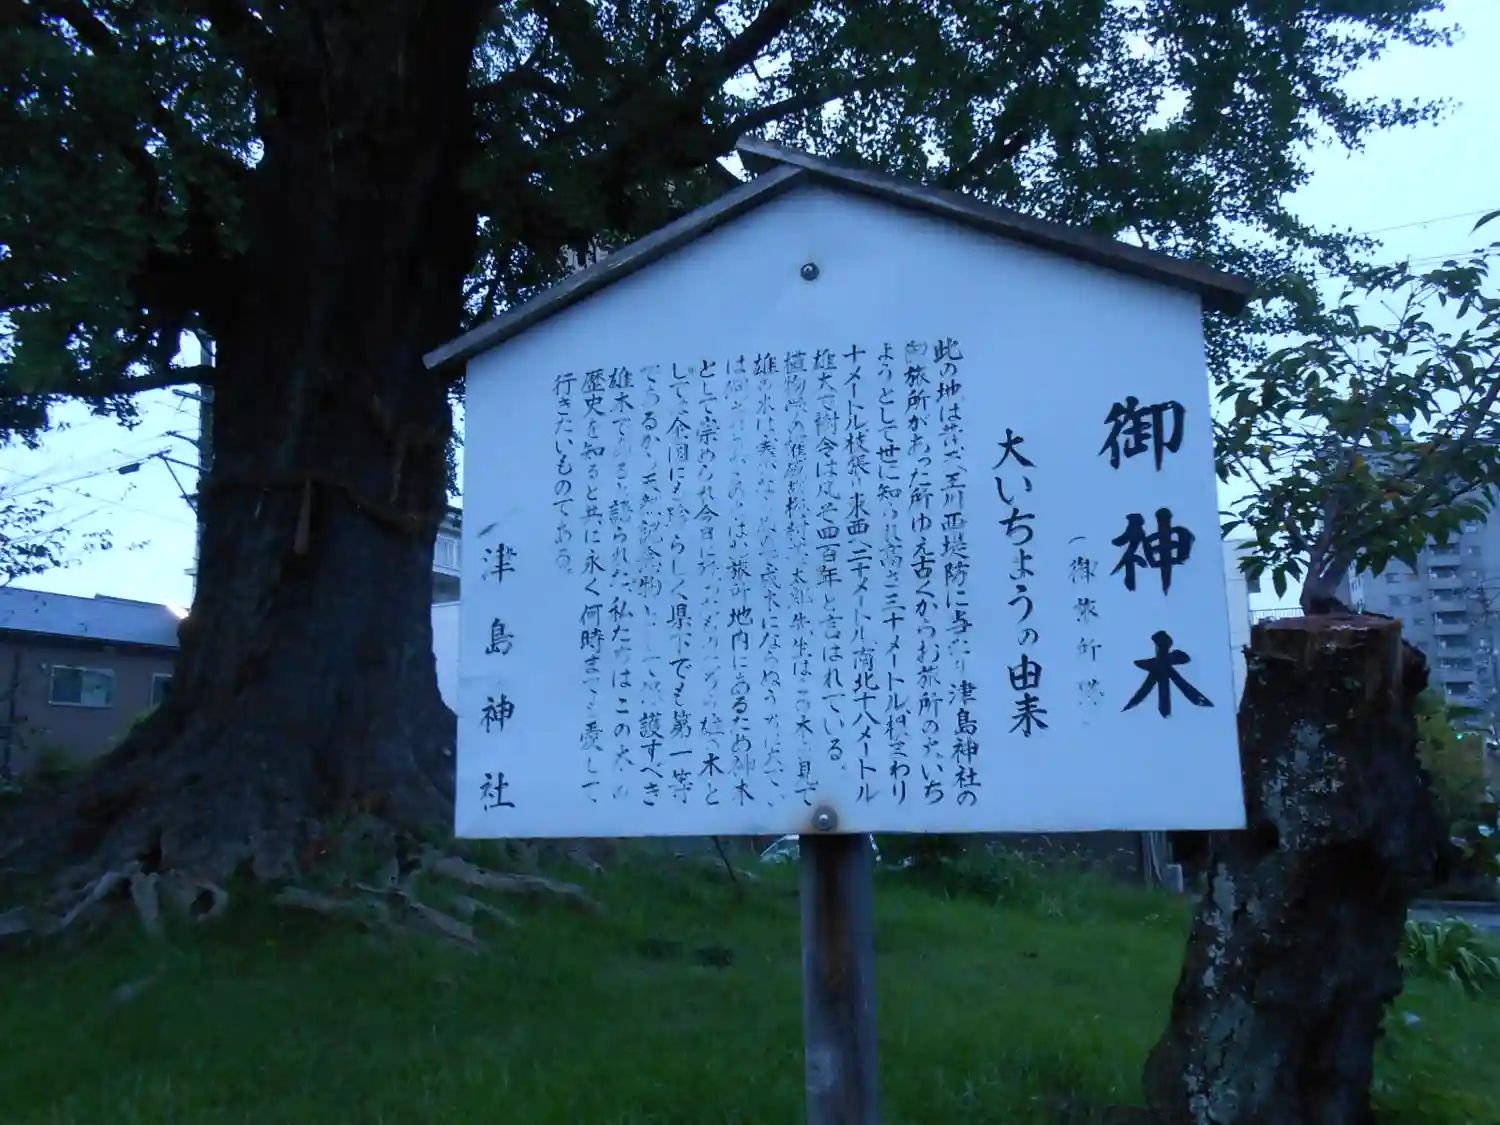 御神木
(御旅所跡)
大いちょうの由来
此の地は昔天王川西堤防に与り津島神社の
御旅所があった所ゆえ古くからお旅所の大いち
ようとして世に知られ高さ三十メートル根まわり
十メートル枝張り東西二十メートル南北十八メートル
雄大で樹令は凡そ四百年と言はれている。
植物学の 先生はこの木を見て
雄の木は
は 旅所地内にあるため神木
として崇められ今日に 雄の木と
しては全国にも珍らしく県下でも第一等
であるから天然記念物として保護すべき
雄木であると語られた。私たちはこの大
歴史を知ると共に永く何時までも愛して
行きたいものである。
津島神社